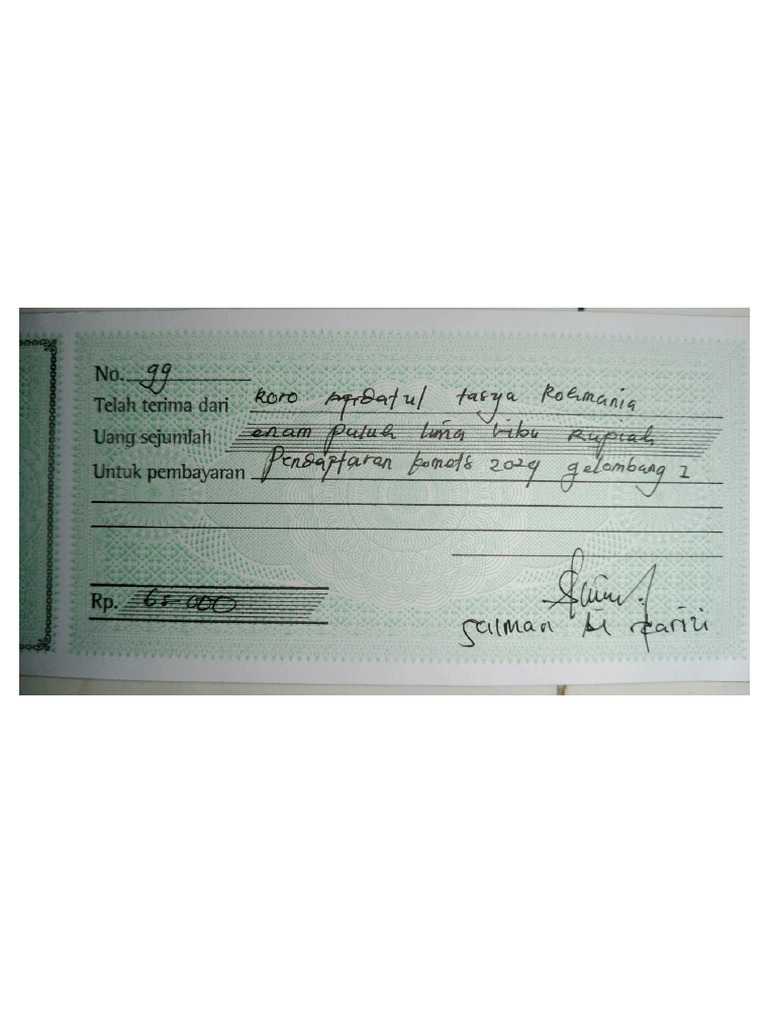 No. 99
Telah terima dari Roro tasya Rohmania
Uang sejumlah enam puluh lima ribu Rupiah
Untuk pembayaran Pendaftaran komets 2024 gelombang 1
Rp. 65.000
Salman Al Farizi